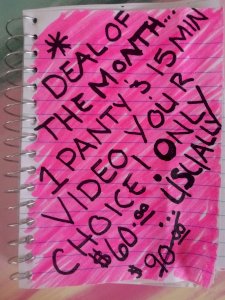 * DEAL OF
THE MONTH...
1 PANTY & 15 MIN
VIDEO YOUR
CHOICE! ONLY
$60.00 USUALLY
$90.00